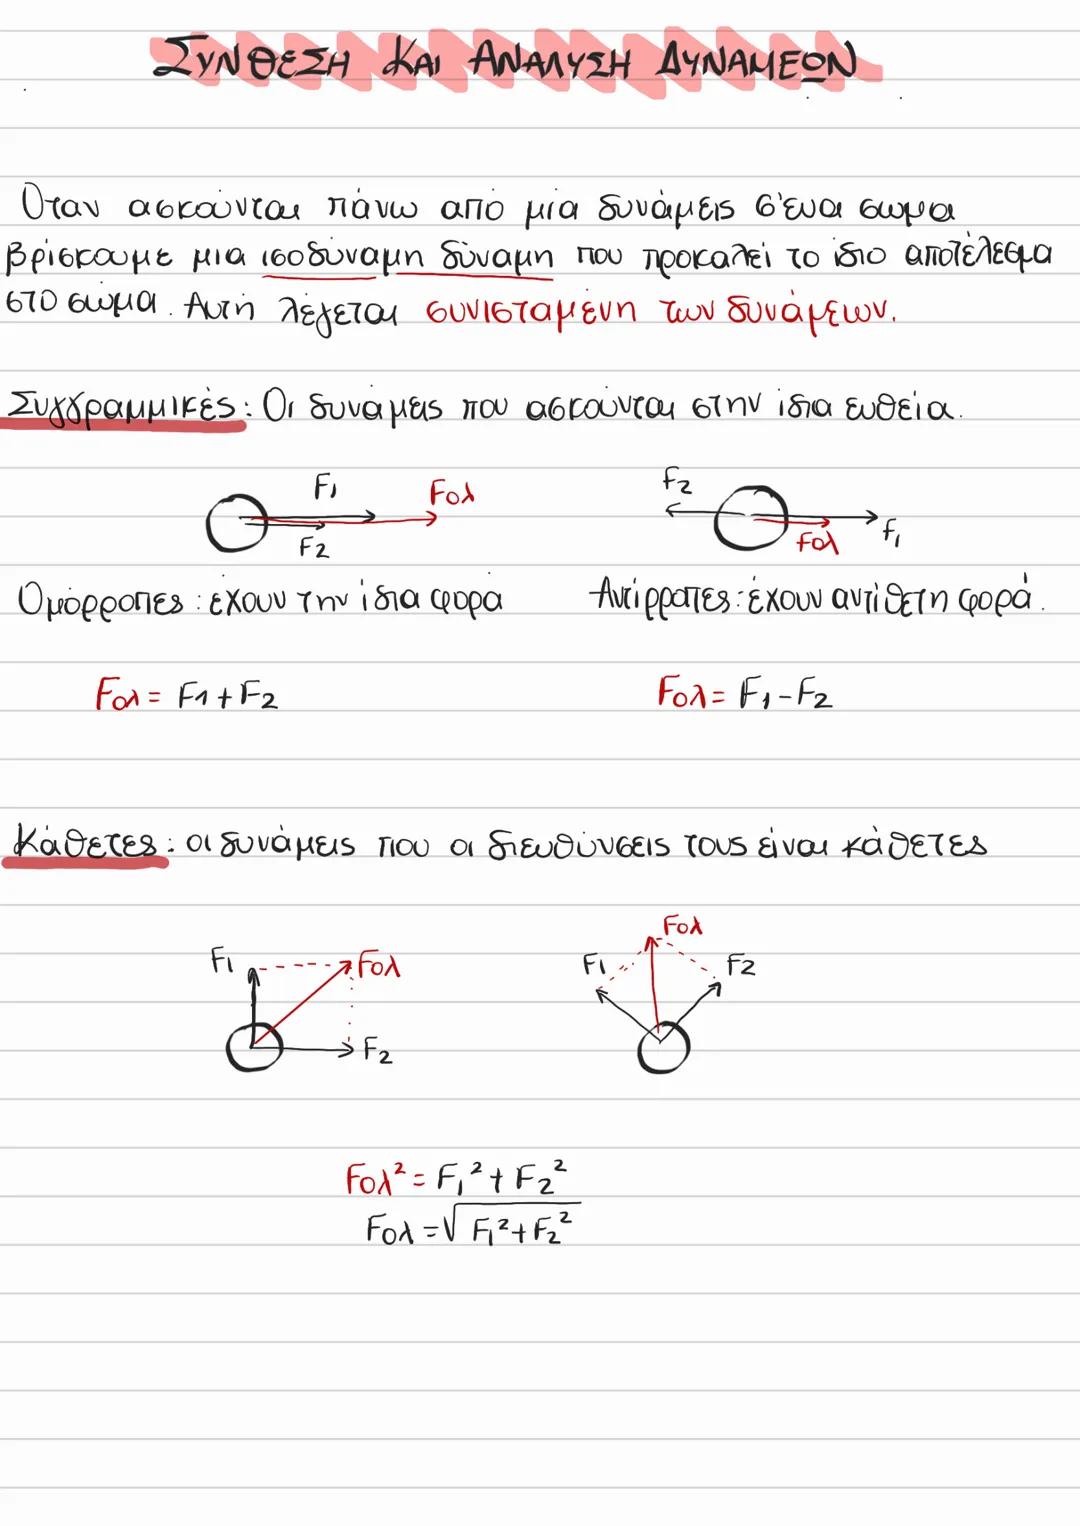 ΣΥΝΘΕΣΗ ΚΑΙ ΑΝΑΛΥΣΗ ΔΥΝΑΜΕΩΝ
Όταν ασκούνται πάνω από μία δυνάμεις σ'ένα σώμα
βρίσκουμε μια ισοδύναμη δύναμη που προκαλεί το ίδιο αποτέλεσμα
στο σώμα. Αυτή λέγεται συνισταμένη των δυνάμεων.
Συγγραμμικές: Οι δυνάμεις που ασκούνται στην ίδια ευθεία.
F1 Fολ
F2
F2
Fολ F1
Ομόρροπες: έχουν την ίδια φορά
Αντίρροπες: έχουν αντίθετη φορά.
Fολ = F1 + F2
Fολ = F1 - F2
Κάθετες: οι δυνάμεις που οι διευθύνσεις τους είναι κάθετες
F1 Fολ
F2
Fολ
F1 F2
Fολ² = F1² + F2²
Fολ = √F1² + F2²